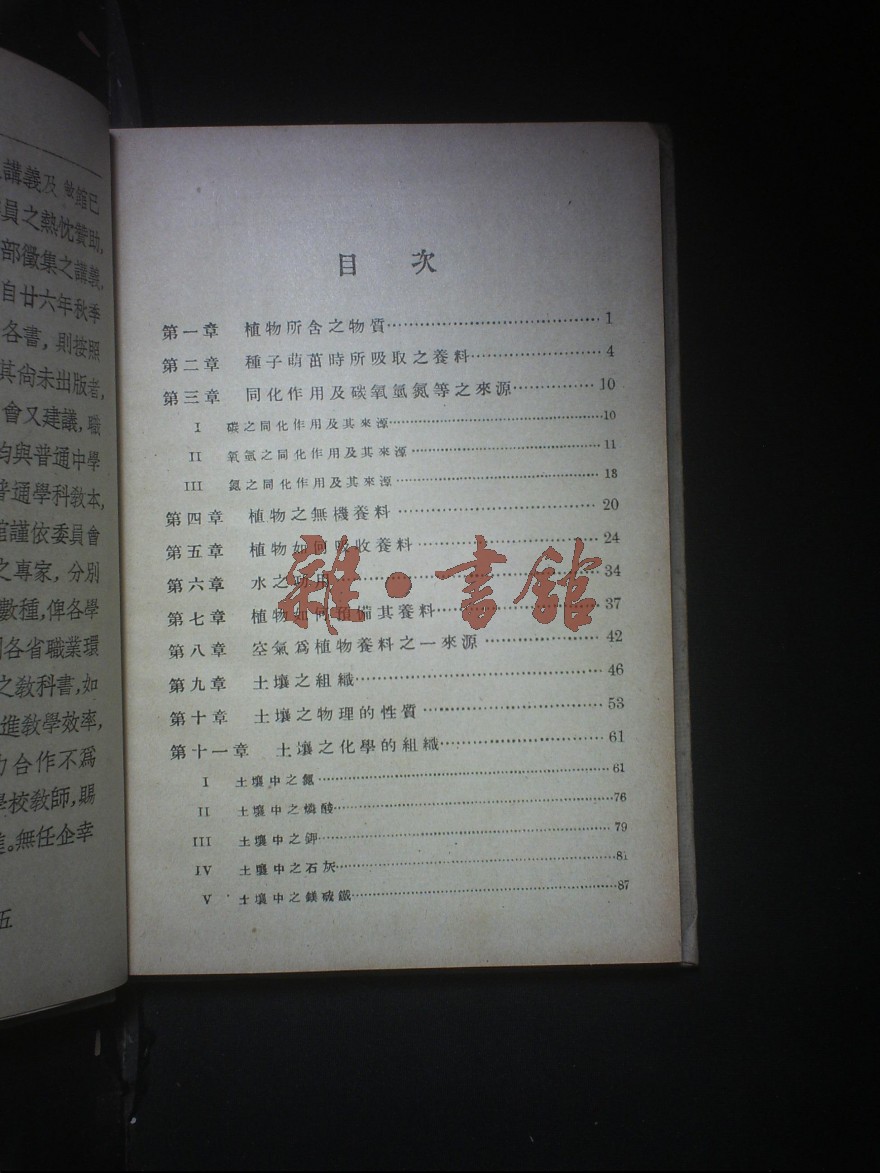 講義及敝館已
員之熱忱贊助,
部徵集之講義,
自廿六年秋季
各書，則按照
其尚未出版者,
會又建議，職
均與普通中學
普通學科敎本,
館謹依委員會
之專家，分別
數種，俾各學
各省職業環
之敎科書，如
進敎學效率,
力合作不爲
學校敎師，賜
。無任企幸
五
目 次
第一章 植物所含之物質 1
第二章 種子萌茁時所吸取之養料 4
第三章 同化作用及碳氧氫氮等之來源 10
I 碳之同化作用及其來源 10
II 氧氫之同化作用及其來源 11
III 氮之同化作用及其來源 18
第四章 植物之無機養料 20
第五章 植物如何吸收養料 24
第六章 水之功用 34
第七章 植物如何預備其養料 37
第八章 空氣爲植物養料之一來源 42
第九章 土壤之組織 46
第十章 土壤之物理的性質 53
第十一章 土壤之化學的組織 61
I 土壤中之氮 61
II 土壤中之燐酸 76
III 土壤中之鉀 79
IV 土壤中之石灰 81
V 土壤中之鎂硫鐵 87
雜·書館